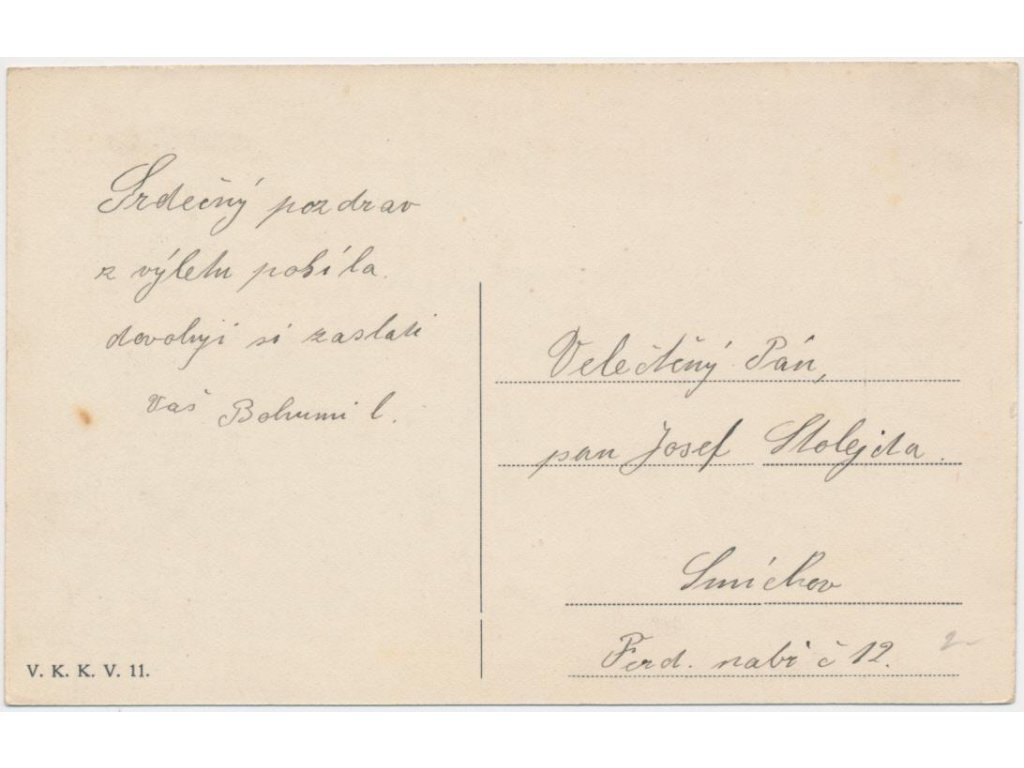 Srdečný pozdrav
z výletu
dovoluji si zaslati
Váš Bohumil.
V. K. K. V. 11.
Velectěný Pán,
pan Josef Stolejda.
Smíchov
Ferd. nabř č 12.
2-